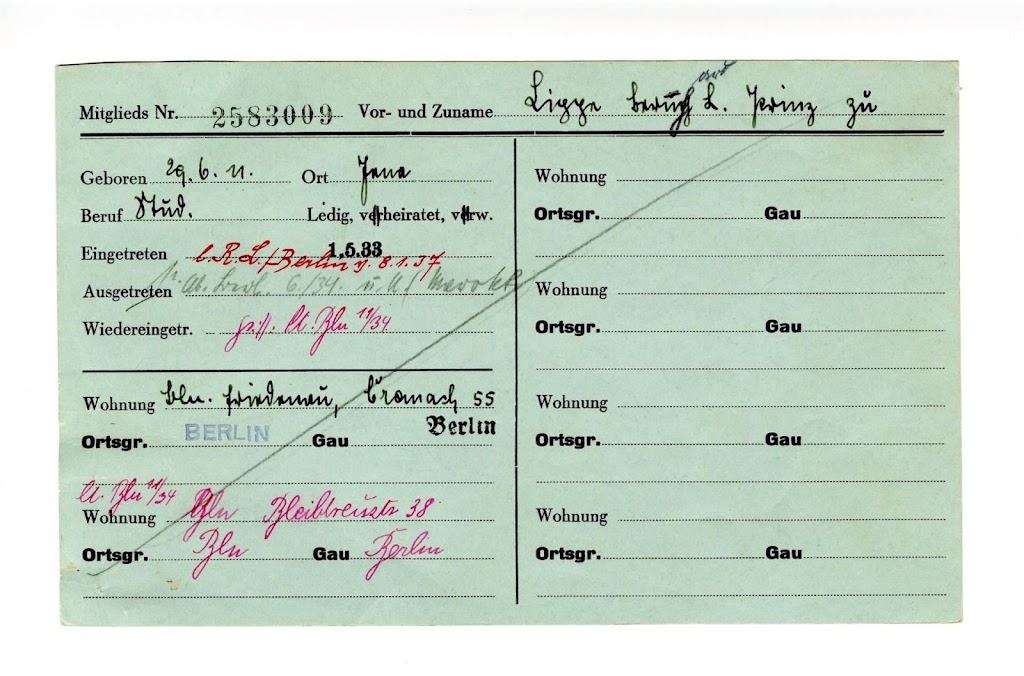 Mitglieds Nr. 2583009 Vor- und Zuname Lippe Bernhard L. Prinz zu
Geboren 29.6.11. Ort Jena
Beruf Stud. Ledig, verheiratet, verw.
Eingetreten 1.5.33
l. R.L./Berlin v. 8.1.37
Ausgetreten 6/34. u.
Wiedereingetr. lt. Bln 11/34
Wohnung Bln. Friedenau, 55
Ortsgr. BERLIN Gau Berlin
lt. Bln 11/34
Wohnung Bln Bleibtreustr 38
Ortsgr. Bln Gau Berlin
Wohnung
Ortsgr. Gau
Wohnung
Ortsgr. Gau
Wohnung
Ortsgr. Gau
Wohnung
Ortsgr. Gau